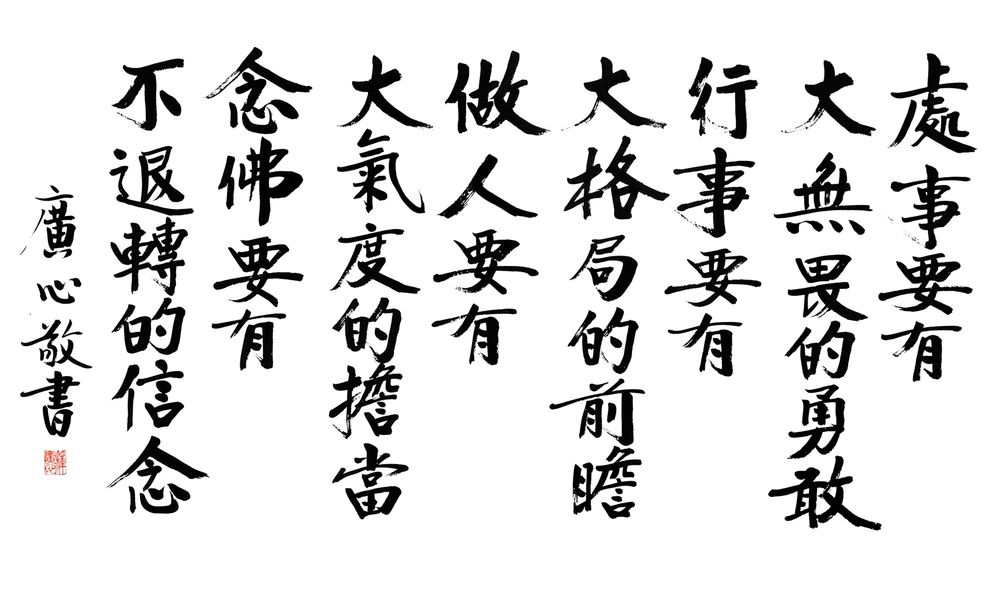 處事要有
大無畏的勇敢
行事要有
大格局的前瞻
做人要有
大氣度的擔當
念佛要有
不退轉的信念
廣心敬書